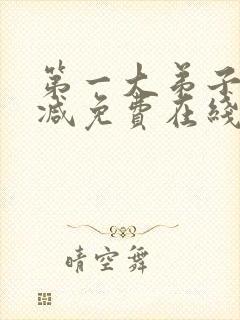 第一大弟子
减免費在綫
晴空舞